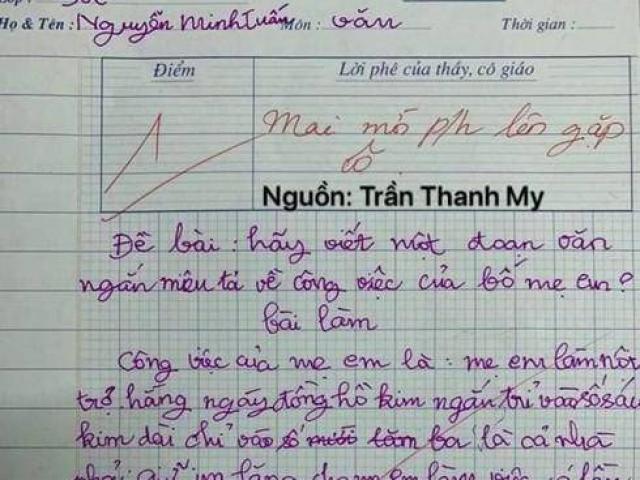 Họ & Tên : Nguyễn Minh Tuấn Môn : văn Thời gian :
Điểm Lời phê của thầy, cô giáo
Mai mời p/h lên gặp
cô
Nguồn: Trần Thanh My
Đề bài : hãy viết một đoạn văn
ngắn miêu tả về công việc của bố mẹ em?
bài làm
Công việc của mẹ em là : mẹ em làm nội
trợ hằng ngày đồng hồ kim ngắn trỉ vào số sáu
kim dài chỉ vào số mười lăm ba là cả nhà